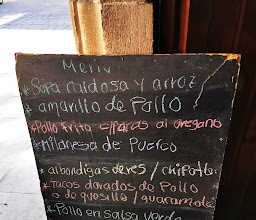 Menu
*Sopa caldosa y arroz
*amarillo de Pollo
*Pollo frito c/papas al oregano
*Milanesa de Puerco
*albondigas de res / chipotle
*Tacos dorados de Pollo
o de quesillo / guacamole
*Pollo en salsa verde